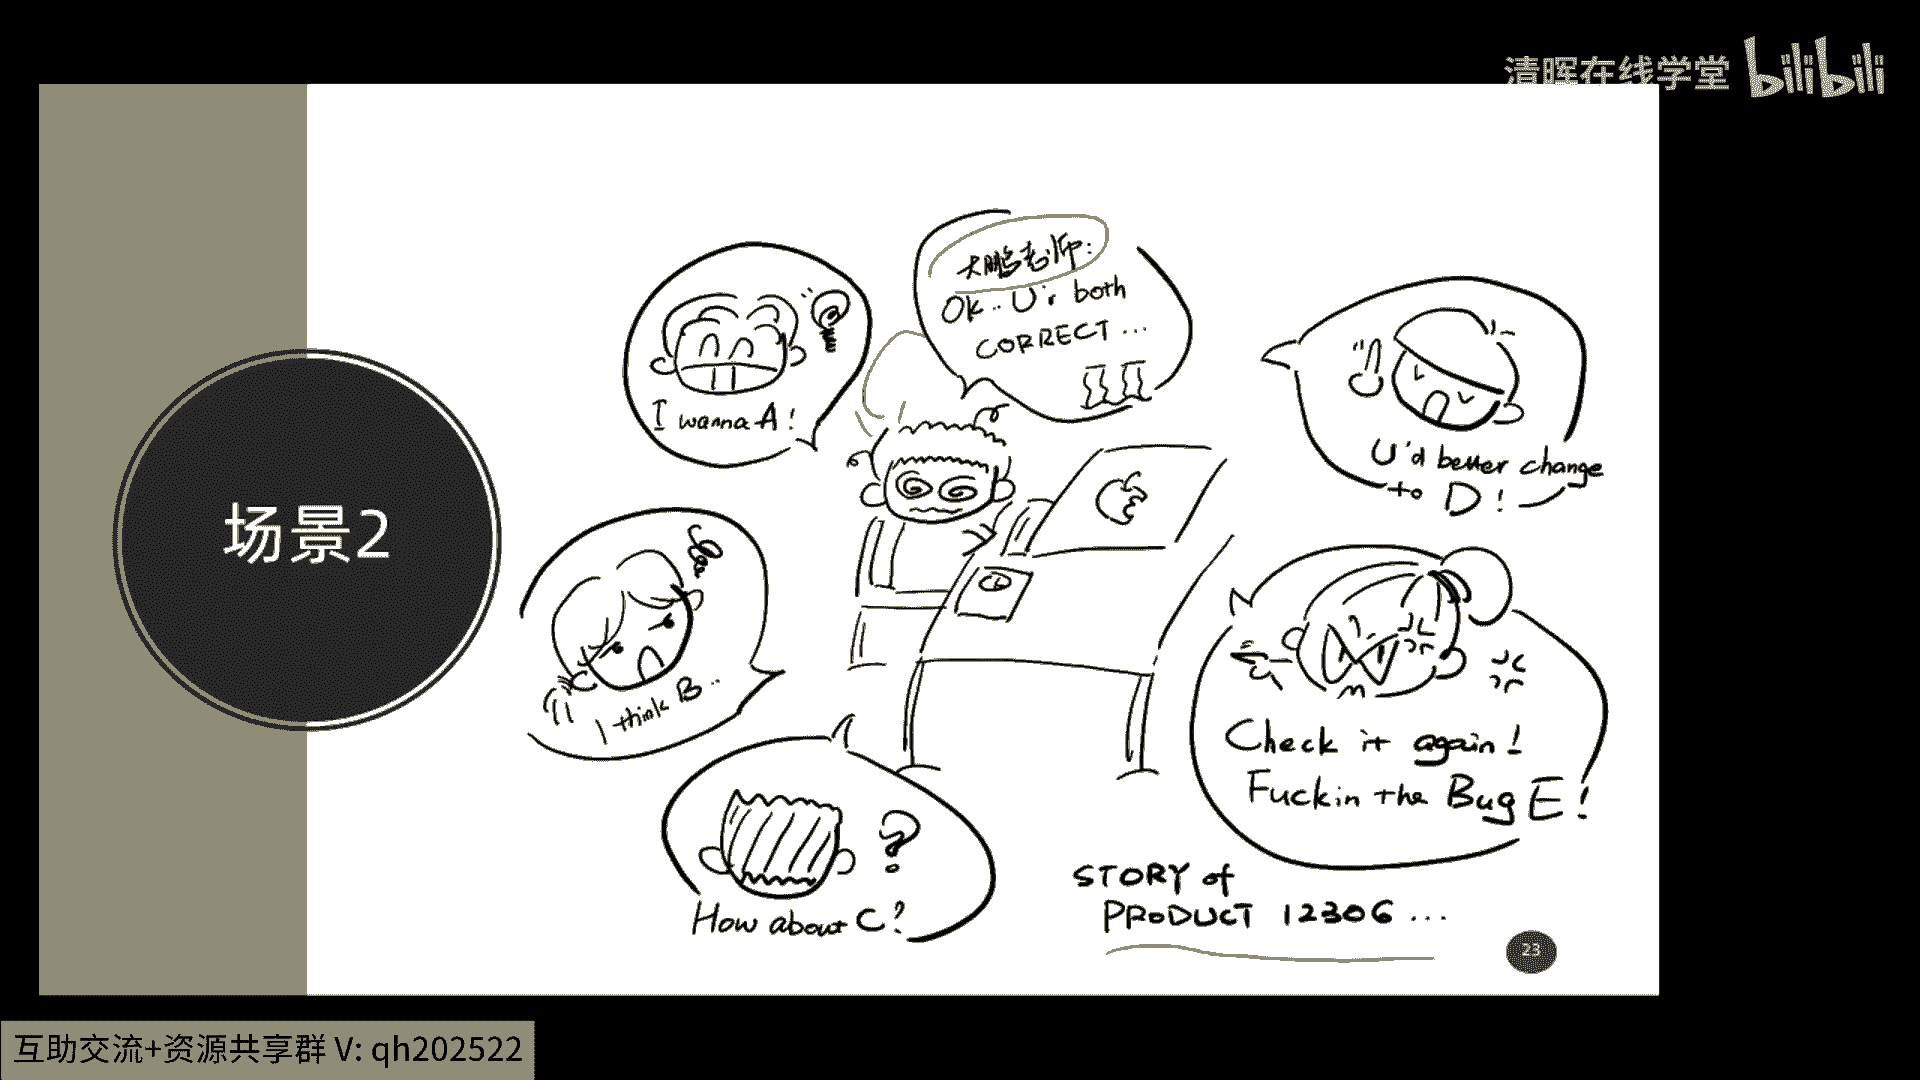 清晖在线学堂 bilibili
场景2
I wanna A!
大鹏老师:
Ok.. U'r both
CORRECT ...
U'd better change
to D!
I think B..
Check it again!
Fuckin the Bug E!
How about C?
STORY of
PRODUCT 12306 ...
23
互助交流+资源共享群 V: qh202522